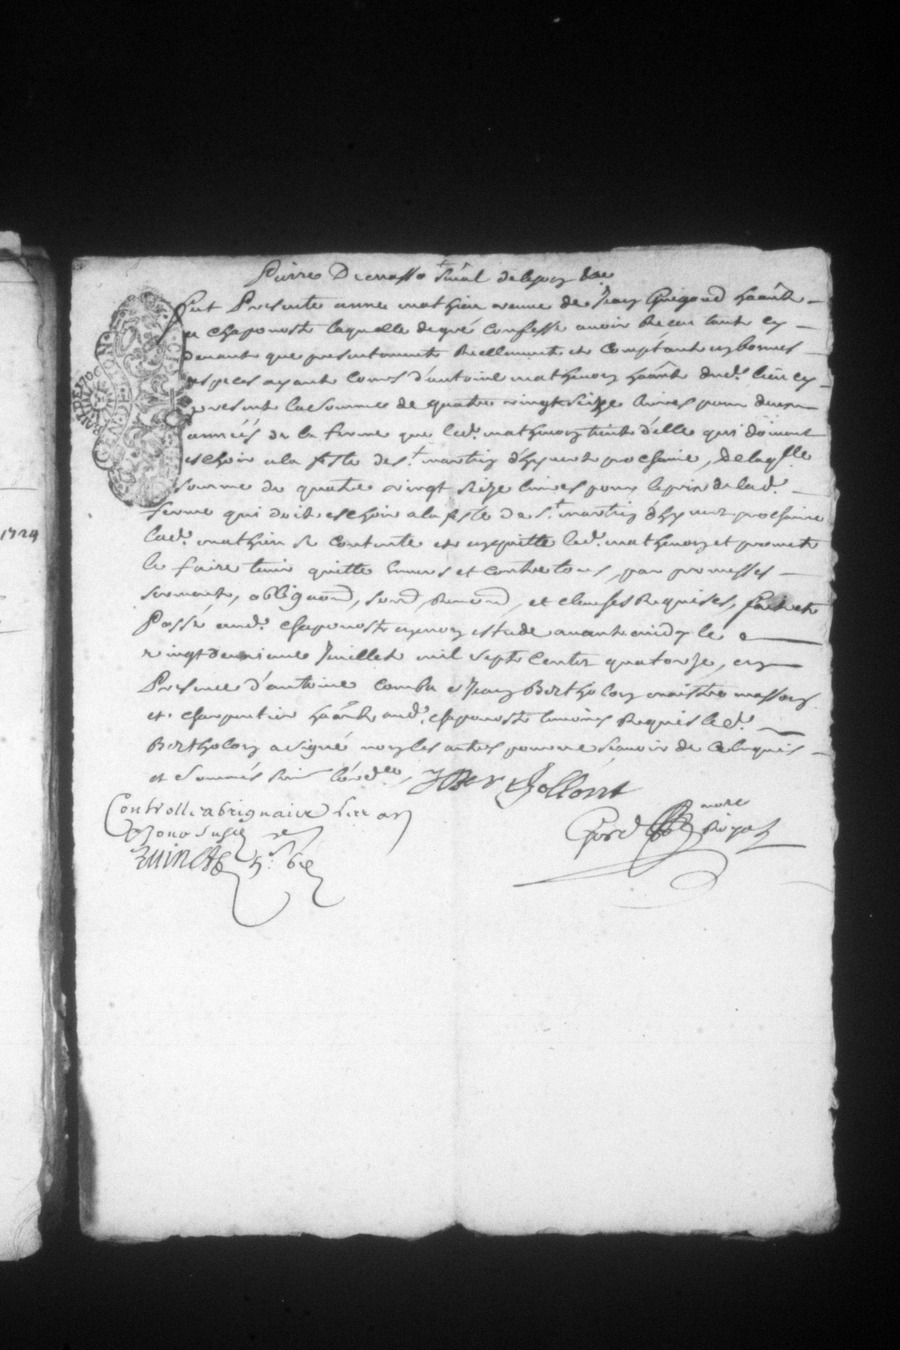 Fut Presente anne mathieu veuve de Jean Guigoud haante
a chaponost laquelle de gré confesse avoir Receu tant cy
devant que presentement Reellement et comptant en bonnes
especes ayant cours d'antoine mathevon haant dud. lieu cy
present la somme de quatre vingt seize livres pour deux
années de la ferme que led. mathevon tient d'elle qui doivent
eschoir a la feste de st. martin d'hyvert prochaine, de laqlle
somme de quatre vingt seize livres pour le prix de lad.
ferme qui doit eschoir a la feste de st. martin d'hyvert prochaine
lad. mathieu se contente et en quitte led. mathevon et promet
le faire tenir quitte envers et contre tous, par promesses
serment, obligaon, soub, renon, et clauses Requises, fait et
Passé aud. chaponost en mon estude avant midy le
vingt deuxieme Juillet mil sept cents quatorze, en
Presence d'antoine comba et Jean Bertholon maistre masson
et charpentier haant aud. chaponost temoins Requis led.
Bertholon a signé non les autres pour ne scavoir de ce enquis
et sommés
Controllé a brignaix
1724